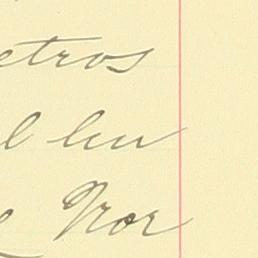 etros
l bu
e Nor